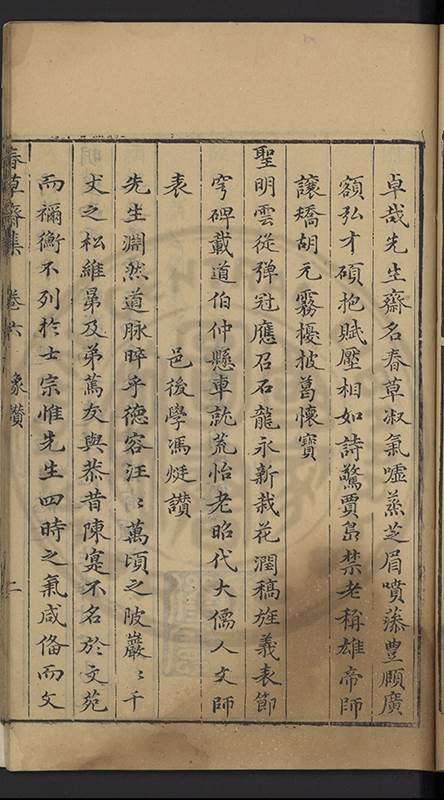 卓哉先生齋名春草淑氣噓蒸芝眉噴藻豐頤廣
額弘才碩抱賦壓相如詩驚賈島禁老稱雄帝師
讓矯胡元霧擾披葛懷寶
聖明雲從彈冠應召石龍永新栽花潤稿旌義表節
穹碑載道伯仲懸車就荒怡老昭代大儒人文師
表　　　　邑後學馮烶讚
先生淵然道脉晬乎德容汪〻萬頃之陂巖〻千
丈之松維㬪及弟蔿友與恭昔陳寔不名於文苑
而禰衡不列於士宗惟先生四時之氣咸俻而文
春草齋集　卷六　象讚　二